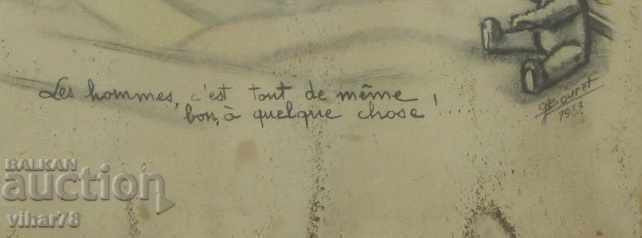 Les hommes, c'est tout de même
bon, à quelque chose !
1953
BALKAN
auction
vihar78